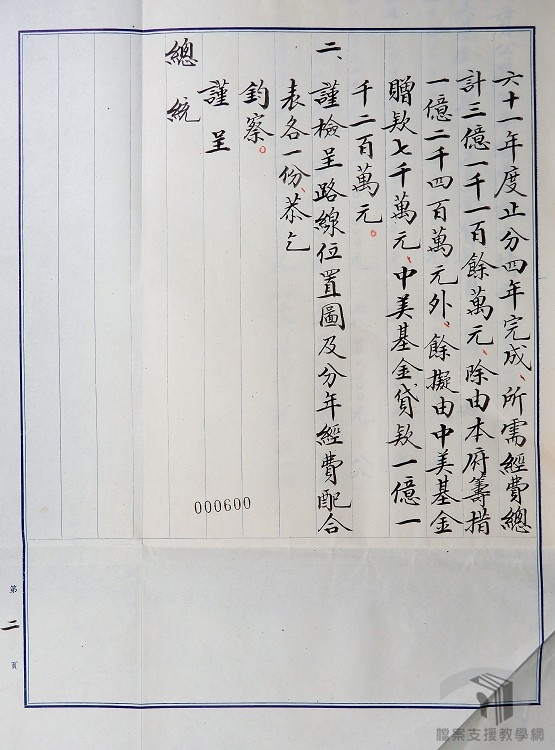 六十一年度止分四年完成、所需經費總
計三億一千一百餘萬元、除由本府籌措
一億二千四百萬元外、餘擬由中美基金
贈款七千萬元、中美基金貸款一億一
千二百萬元。
二、謹檢呈路線位置圖及分年經費配合
表各一份、恭乞
鈞察。
謹呈
總統
000600
第二頁
檔案支援教學網